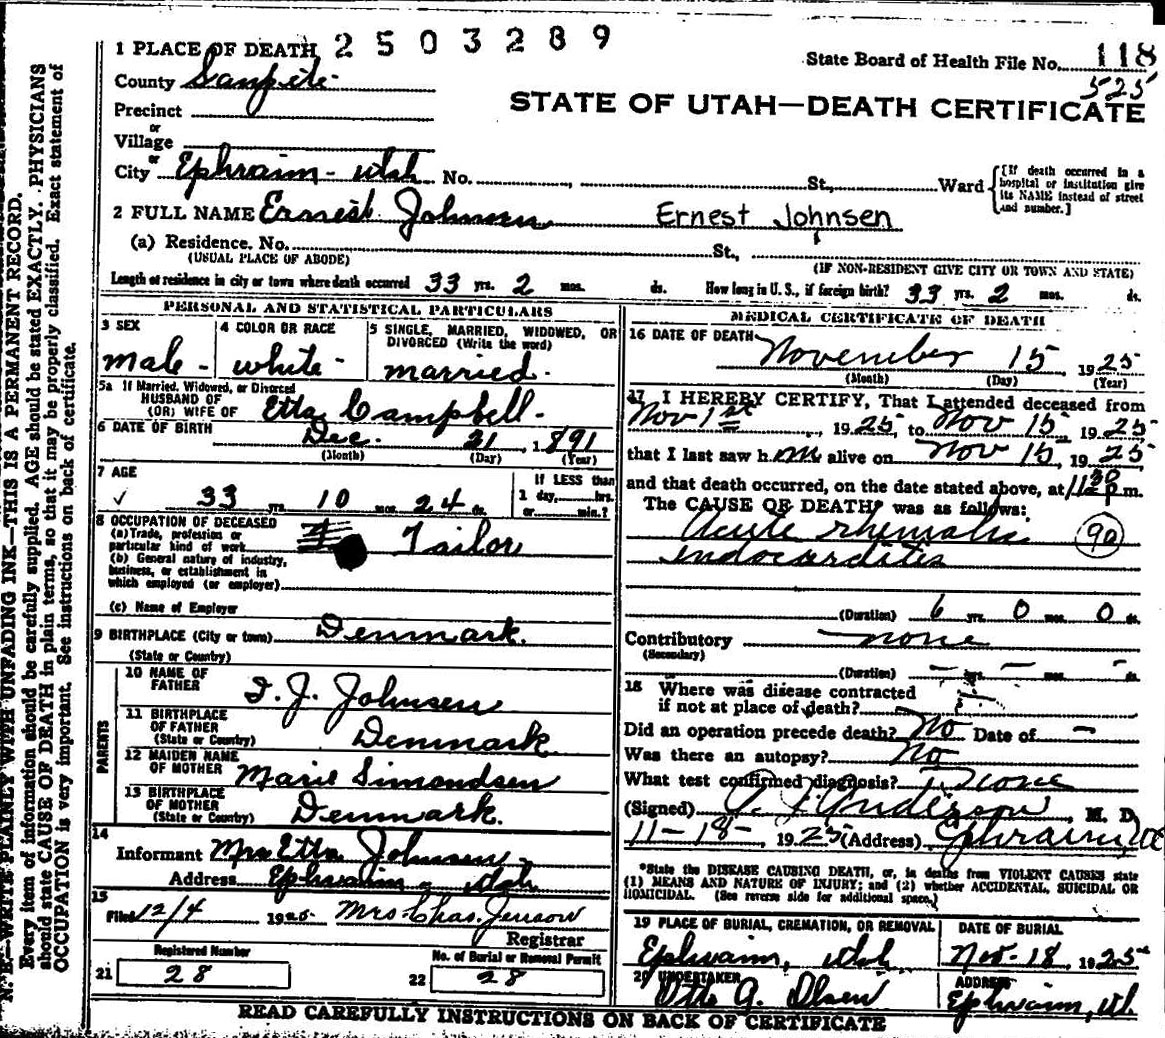 2503289
1 PLACE OF DEATH
State Board of Health File No. 118
County Sanpete
525
STATE OF UTAH—DEATH CERTIFICATE
Precinct
or
Village
or
City Ephraim - Utah No. St., Ward
[If death occurred in a hospital or institution give its NAME instead of street and number.]
2 FULL NAME Ernest Johnsen Ernest Johnsen
(a) Residence. No. St.,
(USUAL PLACE OF ABODE) (IF NON-RESIDENT GIVE CITY OR TOWN AND STATE)
Length of residence in city or town where death occurred 33 yrs. 2 mos. ds. How long in U. S., if foreign birth? 33 yrs. 2 mos. ds.
PERSONAL AND STATISTICAL PARTICULARS
3 SEX
male -
4 COLOR OR RACE
white -
5 SINGLE, MARRIED, WIDOWED, OR DIVORCED (Write the word)
married -
5a If Married, Widowed, or Divorced
HUSBAND OF
(OR) WIFE OF Etta Campbell -
6 DATE OF BIRTH Dec. 21, 1891
(Month) (Day) (Year)
7 AGE
33 yrs. 10 mos. 24 ds.
If LESS than
1 day, hrs.
or min.?
8 OCCUPATION OF DECEASED
(a) Trade, profession or
particular kind of work Tailor
(b) General nature of industry,
business, or establishment in
which employed (or employer)
(c) Name of Employer
9 BIRTHPLACE (City or town) Denmark.
(State or Country)
PARENTS
10 NAME OF
FATHER J. Johnsen
11 BIRTHPLACE
OF FATHER
(State or Country) Denmark
12 MAIDEN NAME
OF MOTHER Marie Simondsen
13 BIRTHPLACE
OF MOTHER
(State or Country) Denmark.
14
Informant Mrs Etta Johnsen
Address Ephraim - Utah
15
Filed 12/4 1925 Mrs. Chas. Jensen
Registrar
Registered Number
21 28
No. of Burial or Removal Permit
22 28
MEDICAL CERTIFICATE OF DEATH
16 DATE OF DEATH
November 15, 1925
(Month) (Day) (Year)
17 I HEREBY CERTIFY, That I attended deceased from
Nov 1st, 1925, to Nov 15, 1925
that I last saw him alive on Nov 15, 1925
and that death occurred, on the date stated above, at 11:30 p m.
The CAUSE OF DEATH* was as follows:
Acute rhumatic 90
indocarditis
(Duration) 6 yrs. 0 mos. 0 ds.
Contributory none
(Secondary)
(Duration) - yrs. - mos. - ds.
18 Where was disease contracted
if not at place of death?
Did an operation precede death? No Date of -
Was there an autopsy? No
What test confirmed diagnosis? None
(Signed) Anderson, M. D.
11-18-, 1925 (Address) Ephraim, Ut
*State the DISEASE CAUSING DEATH, or, in deaths from VIOLENT CAUSES state
(1) MEANS AND NATURE OF INJURY; and (2) whether ACCIDENTAL, SUICIDAL OR
HOMICIDAL. (See reverse side for additional space.)
19 PLACE OF BURIAL, CREMATION, OR REMOVAL
Ephraim, Utah
DATE OF BURIAL
Nov-18, 1925
20 UNDERTAKER
Otto A. Olsen
ADDRESS
Ephraim, Ut.
READ CAREFULLY INSTRUCTIONS ON BACK OF CERTIFICATE
N. B.—WRITE PLAINLY WITH UNFADING INK—THIS IS A PERMANENT RECORD.
Every item of information should be carefully supplied. AGE should be stated EXACTLY. PHYSICIANS
should state CAUSE OF DEATH in plain terms, so that it may be properly classified. Exact statement of
OCCUPATION is very important. See instructions on back of certificate.